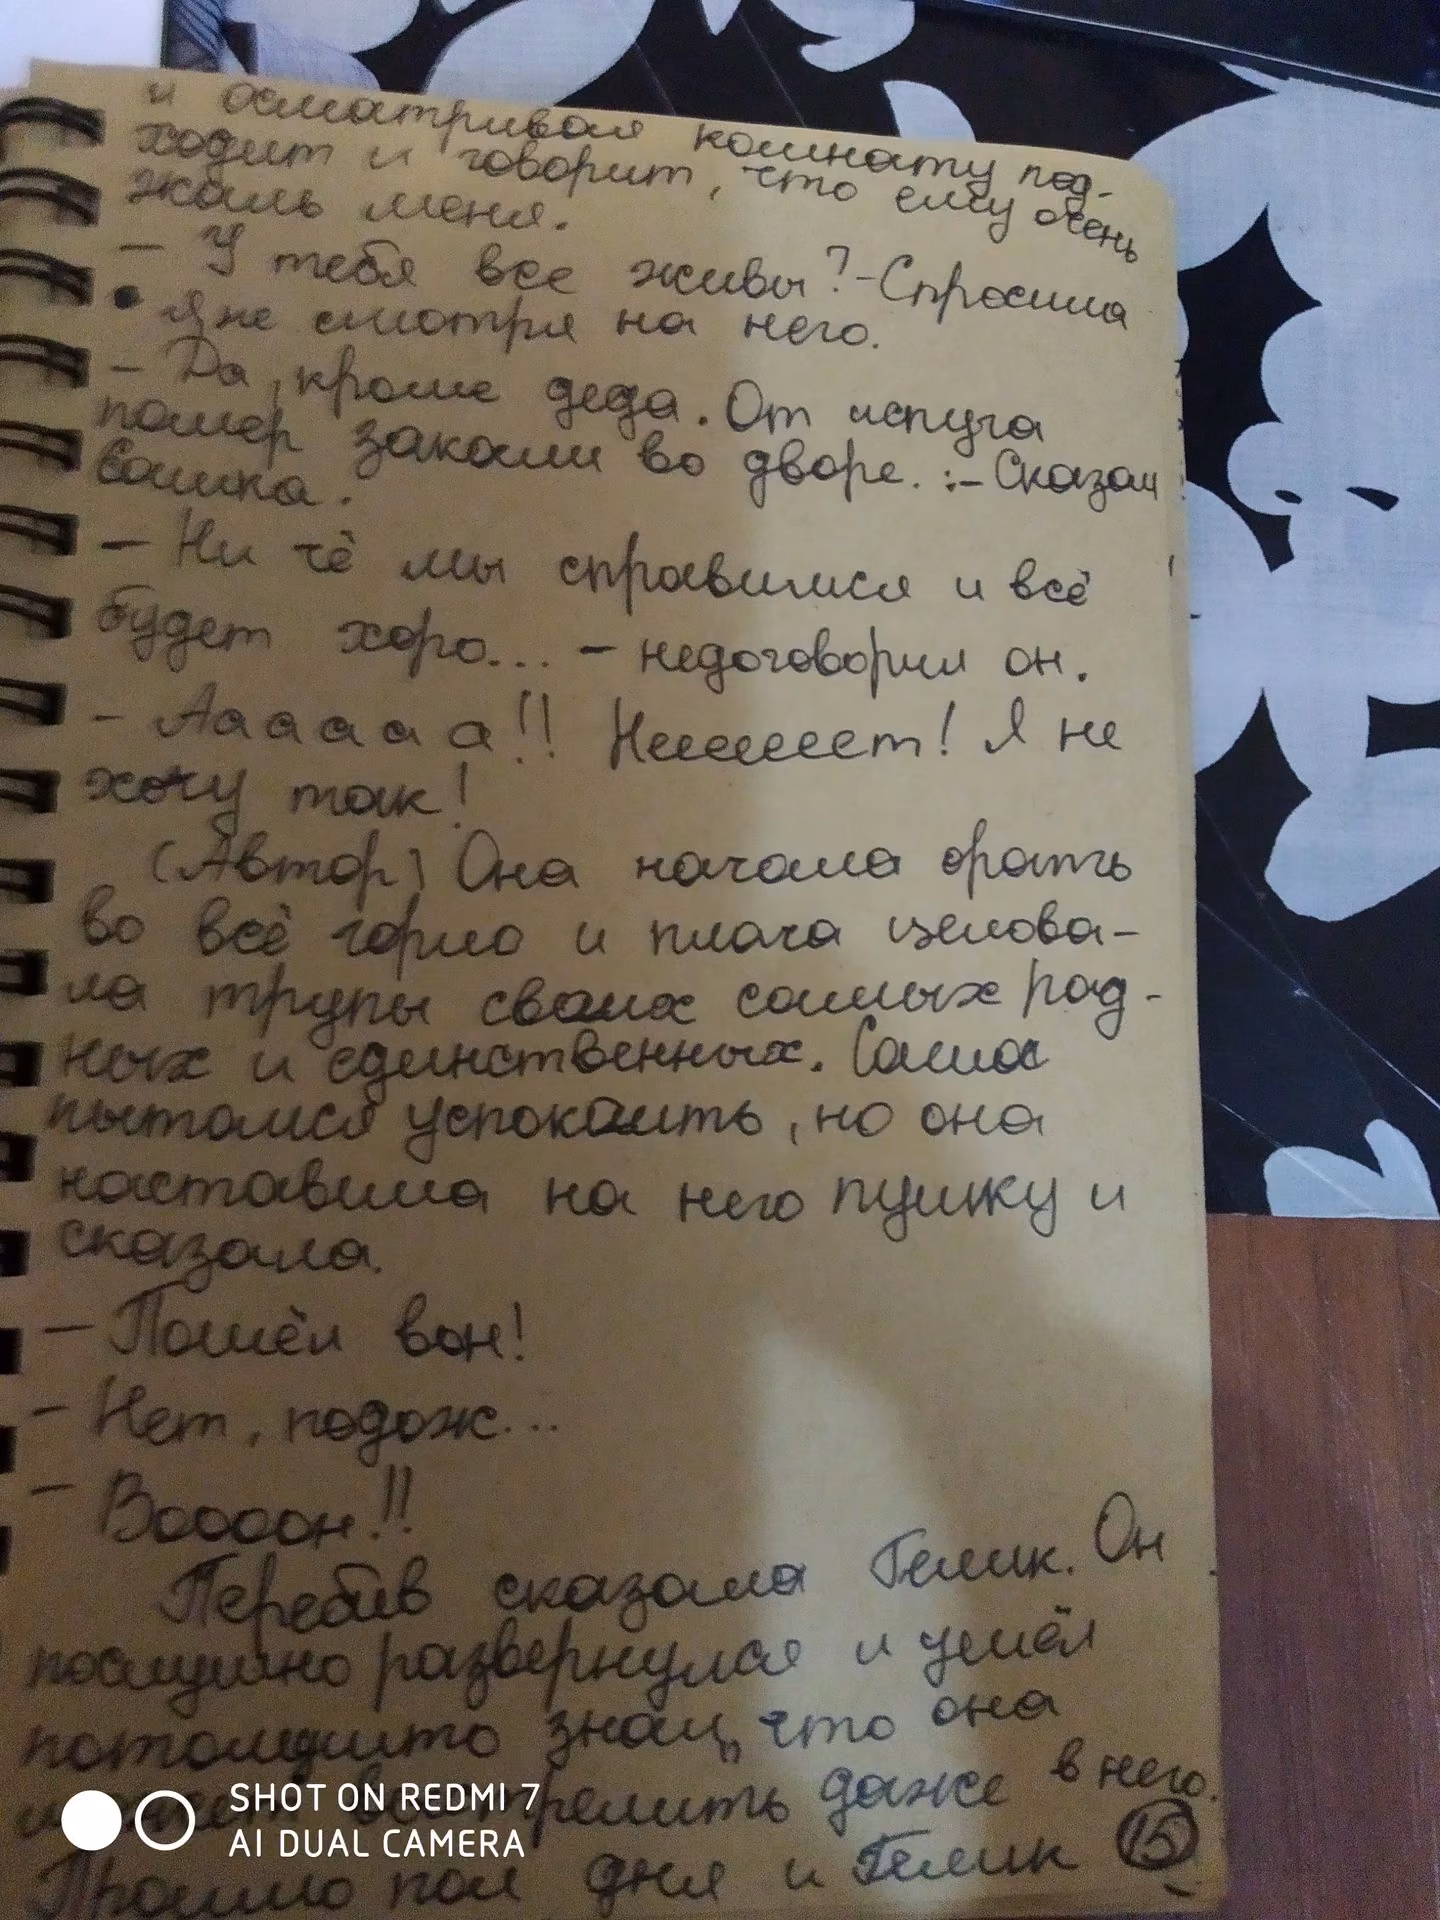 и осматривая комнату под-
ходит и говорит, что ему очень
жаль меня.
– У тебя все живы? – Спросила
я не смотря на него.
– Да, кроме деда. От испуга
помер закапали во дворе. :– Сказал
Сашка.
– Ни чё мы справимся и всё
будет хоро... – недоговорил он.
– Ааааа а!! Нееееееет! Я не
хочу так!
(Автор) Она начала орать
во всё горло и плача целова-
ла трупы своих самых род-
ных и единственных. Саша
пытался успокоить, но она
наставила на него пушку и
сказала.
– Пошёл вон!
– Нет, подож...
– Воооон!!
Перебив сказала Гелик. Он
послушно развернулся и ушёл
потомушто знал, что она
даже в него.
Прошло пол дня и Гелик
15
SHOT ON REDMI 7
AI DUAL CAMERA